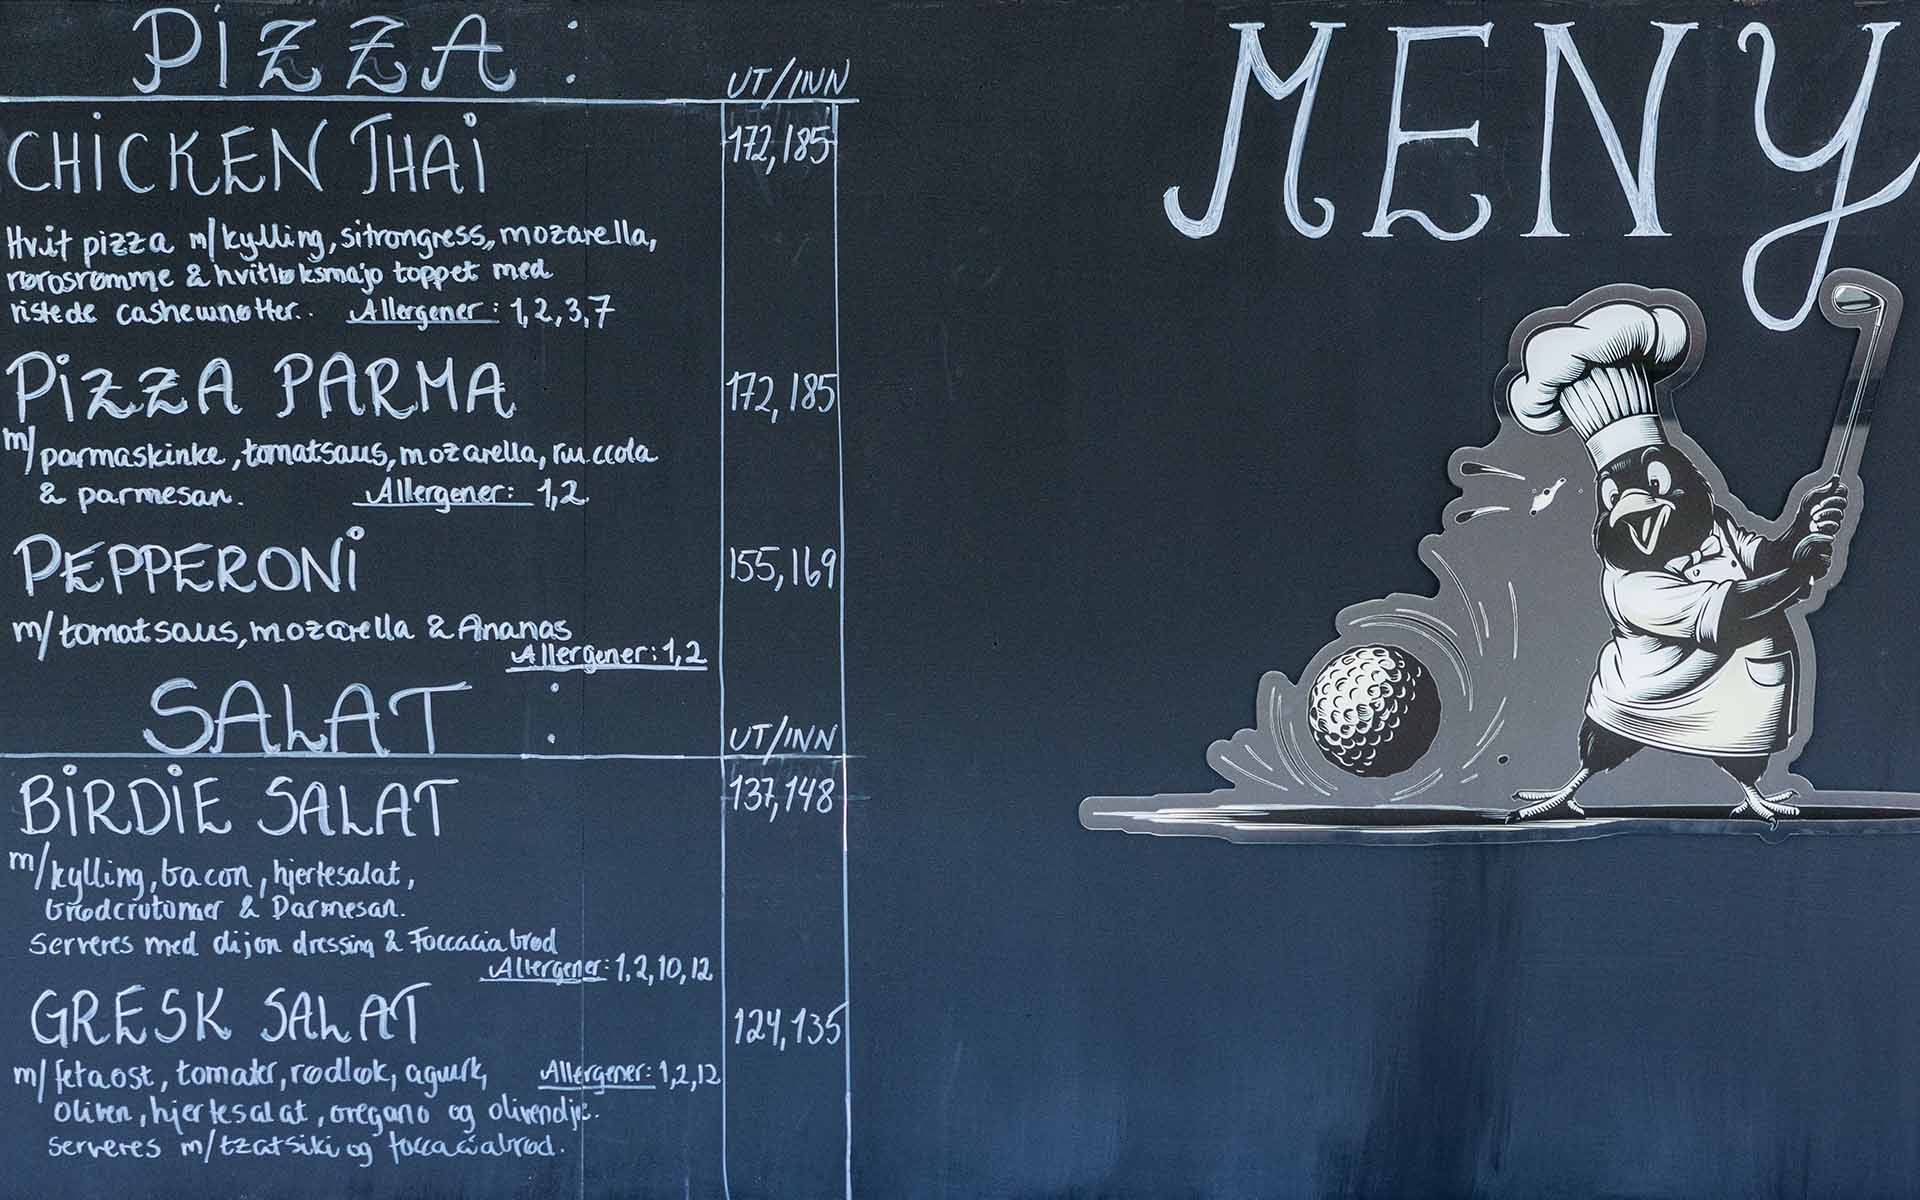 PiZZA :
UT/INN
MENY
CHiCKEN THAi 172,185
Hvit pizza m/kylling, sitrongress, mozarella,
rørosrømme & hvitløksmajo toppet med
ristede cashewnøtter.. Allergener: 1,2,3,7
PiZZA PARMA 172,185
m/parmaskinke, tomatsaus, mozarella, ruccola
& parmesan. Allergener: 1,2
PEPPERONi 155,169
m/tomatsaus, mozarella & Ananas
Allergener: 1,2
SALAT :
UT/INN
BiRDiE SALAT 137,148
m/kylling, bacon, hjertesalat,
brødcrutonger & Parmesan.
Serveres med dijon dressing & Foccacia brød
Allergener: 1,2,10,12
GRESK SALAT 124,135
m/fetaost, tomater, rødløk, agurk, Allergener: 1,2,12
Oliven, hjertesalat, oregano og olivendje.
Serveres m/tzatsiki og foccaciabrød.